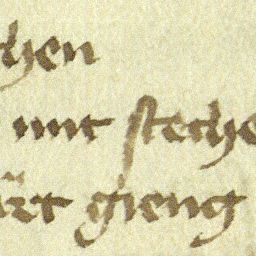 chen
mit steche
art gieng